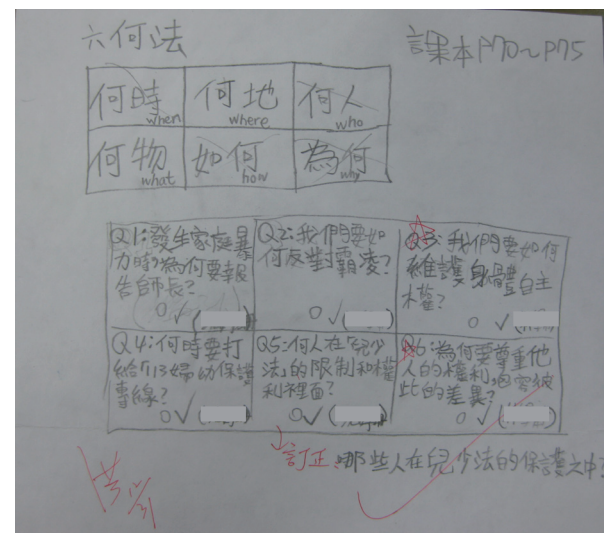 六何法
課本P70~P75
何時 when
何地 where
何人 who
何物 what
如何 how
為何 why
Q1:發生家庭暴
力時,為何要報
告師長?
○✓
Q2:我們要如
何反對霸凌?
○✓
Q3:我們要如何
維護身體自主
權?
○✓
Q4:何時要打
給「113婦幼保護
專線?
○✓
Q5:何人在「兒少
法」的限制和權
利裡面?
○✓
Q6:為何要尊重他
人的權利,包容彼
此的差異?
○✓
訂正:哪些人在兒少法的保護之中?